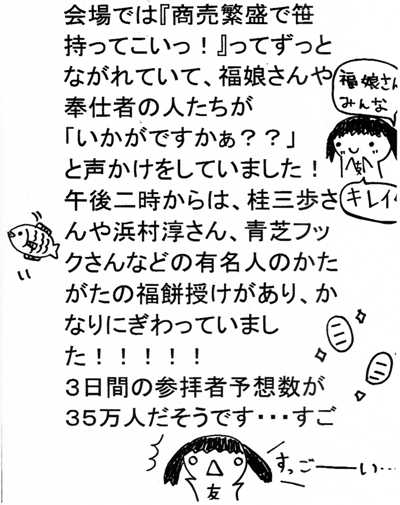 会場では『商売繁盛で笹
持ってこいっ！』ってずっと
ながれていて、福娘さんや
奉仕者の人たちが
「いかがですかぁ？？」
と声かけをしていました！
午後二時からは、桂三歩さ
んや浜村淳さん、青芝フッ
クさんなどの有名人のかた
がたの福餅授けがあり、か
なりにぎわっていまし
た！！！！！
３日間の参拝者予想数が
３５万人だそうです・・・すご
福娘さん
みんな
友
キレイ
友
すっごーーい…